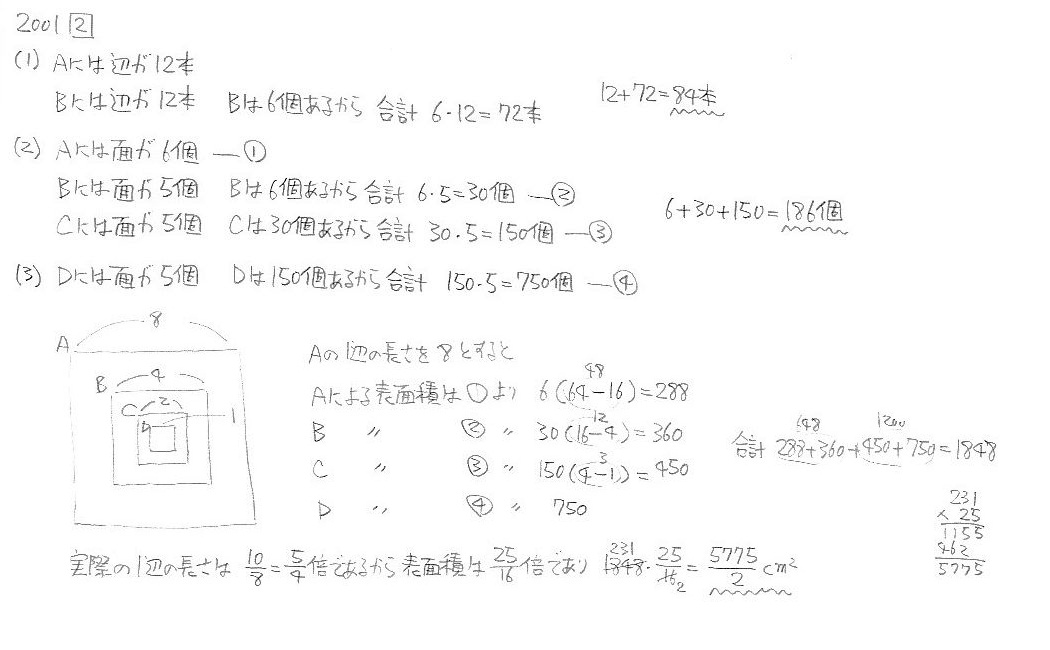 2001 2
(1) Aには辺が12本
Bには辺が12本 Bは6個あるから 合計 6・12=72本 12+72=84本
(2) Aには面が6個 ―①
Bには面が5個 Bは6個あるから合計 6・5=30個 ―②
Cには面が5個 Cは30個あるから合計 30・5=150個 ―③ 6+30+150=186個
(3) Dには面が5個 Dは150個あるから合計 150・5=750個 ―④
A 8
B 4
C 2
D 1
Aの1辺の長さを8とすると
48
Aによる表面積は①より 6(64-16)=288
12
B 〃 ② 〃 30(16-4)=360
3
C 〃 ③ 〃 150(4-1)=450
D 〃 ④ 〃 750
648 1200
合計 288+360+450+750=1848
231
×25
1155
462
5775
実際の1辺の長さは 10/8=5/4倍であるから表面積は 25/16 倍であり 231 1848・25/16 2=5775/2 cm²